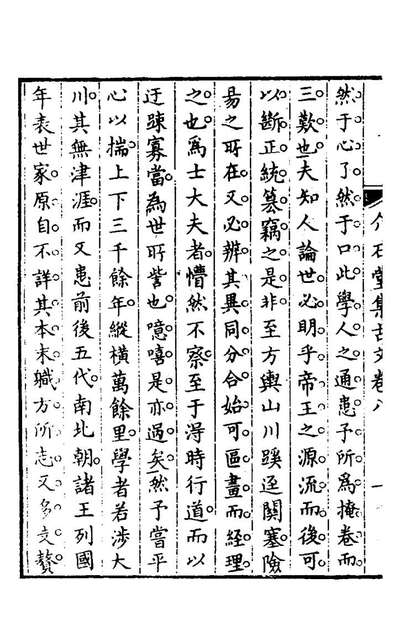 然于心了然于口此學人之通患予所爲掩卷而
三歎也夫知人論世必明乎帝王之源流而後可
以斷正統篡竊之是非至方輿山川蹊逕關塞險
易之所在又必辨其異同分合始可區畫而經理
之也爲士大夫者懵然不察至于淂時行道而以
迂踈寡當為世所訾也噫嘻是亦過矣然予嘗平
心以揣上下三千餘年縱橫萬餘里學者若涉大
川其無津涯而又患前後五代南北朝諸王列國
年表世家原自不詳其本末職方所志又多支贅
介石堂集古文卷八